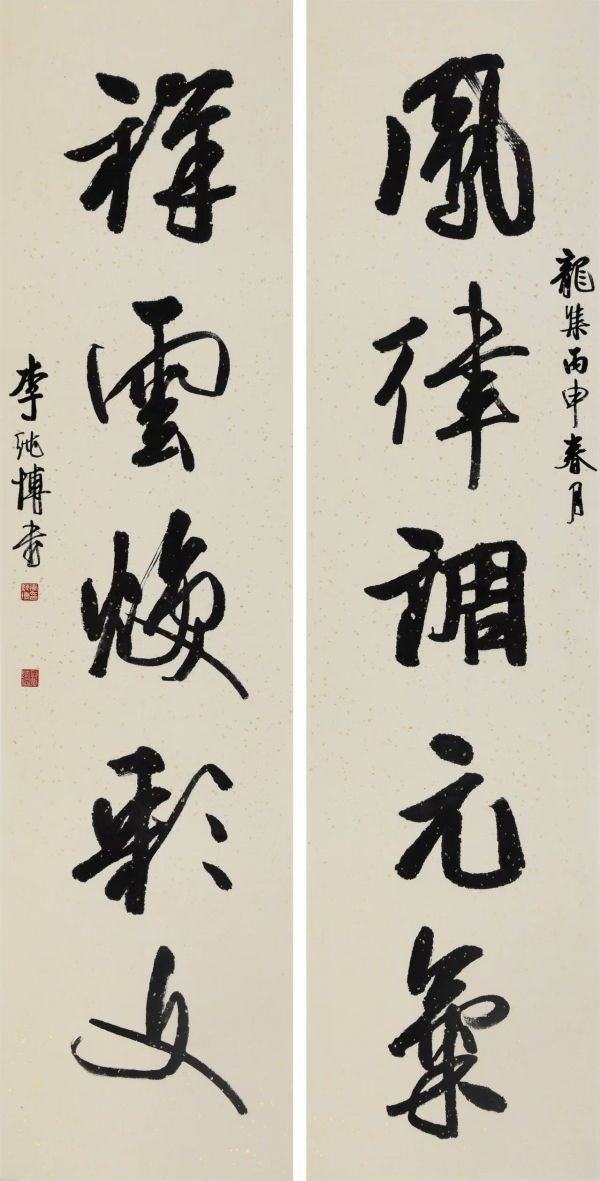 龍集丙申春月
鳳律調元氣
祥雲煥彩文
李純博書